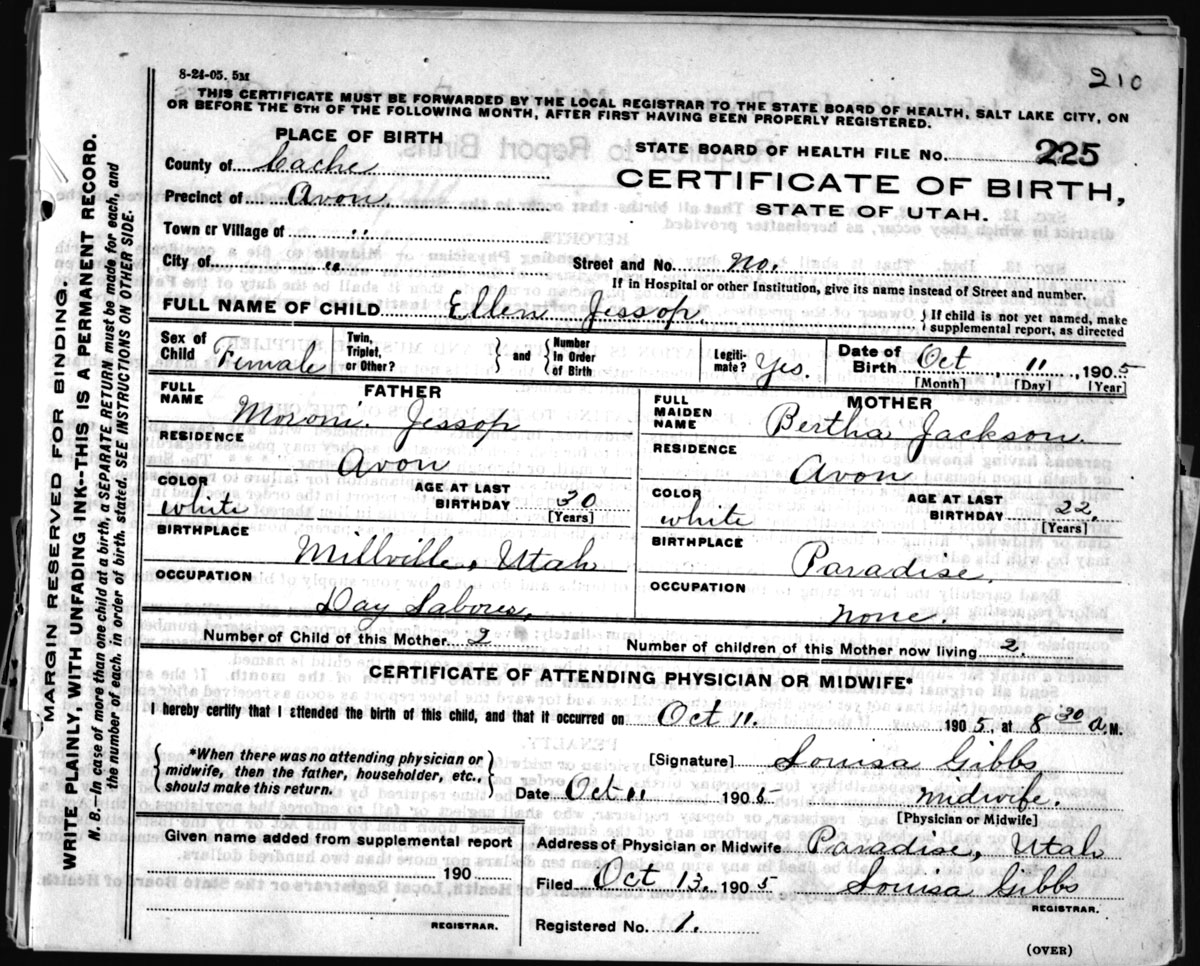 8-24-05. 5M
210
THIS CERTIFICATE MUST BE FORWARDED BY THE LOCAL REGISTRAR TO THE STATE BOARD OF HEALTH, SALT LAKE CITY, ON
OR BEFORE THE 5TH OF THE FOLLOWING MONTH, AFTER FIRST HAVING BEEN PROPERLY REGISTERED.
PLACE OF BIRTH
STATE BOARD OF HEALTH FILE No. 225
County of Cache
CERTIFICATE OF BIRTH,
Precinct of Avon
STATE OF UTAH.
Town or Village of "
City of " Street and No. no.
If in Hospital or other Institution, give its name instead of Street and number.
FULL NAME OF CHILD Ellen Jessop { If child is not yet named, make supplemental report, as directed
Sex of Child Female Twin, Triplet, or Other? } and { Number in Order of Birth Legiti- mate? Yes. Date of Birth Oct 11 , 1905
[Month] [Day] [Year]
FATHER
FULL NAME Moroni Jessop
RESIDENCE
Avon
COLOR white AGE AT LAST BIRTHDAY 30 [Years]
BIRTHPLACE
Millville, Utah
OCCUPATION
Day Laborer.
MOTHER
FULL MAIDEN NAME Bertha Jackson.
RESIDENCE
Avon
COLOR white AGE AT LAST BIRTHDAY 22. [Years]
BIRTHPLACE
Paradise.
OCCUPATION
none.
Number of Child of this Mother 2 Number of children of this Mother now living 2.
CERTIFICATE OF ATTENDING PHYSICIAN OR MIDWIFE*
I hereby certify that I attended the birth of this child, and that it occurred on Oct 11. 1905, at 8 30 a. M.
{ *When there was no attending physician or
midwife, then the father, householder, etc.,
should make this return. }
[Signature] Louisa Gibbs
Date Oct 11 1905 Midwife.
[Physician or Midwife]
Given name added from supplemental report
190
REGISTRAR.
Address of Physician or Midwife Paradise, Utah
Filed Oct 13. 1905 Louisa Gibbs
REGISTRAR.
Registered No. 1.
(OVER)
MARGIN RESERVED FOR BINDING.
WRITE PLAINLY WITH UNFADING INK--THIS IS A PERMANENT RECORD.
N. B.—In case of more than one child at a birth, a SEPARATE RETURN must be made for each, and
the number of each, in order of birth, stated. SEE INSTRUCTIONS ON OTHER SIDE.